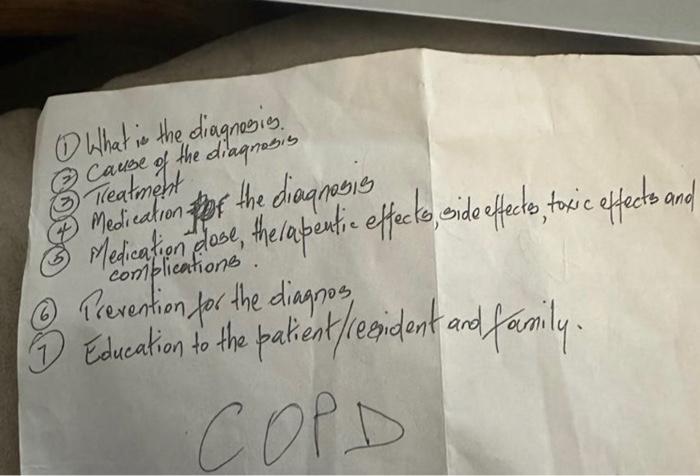 ① What is the diagnosis.
② Cause of the diagnosis
③ Treatment
④ Medication for the diagnosis
⑤ Medication dose, therapeutic effects, side effects, toxic effects and
complications.
⑥ Prevention for the diagnos
⑦ Education to the patient/resident and family.
COPD